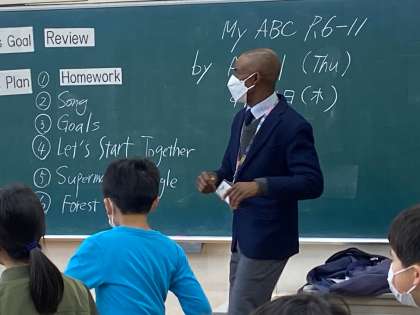 s Goal
Review
My ABC P.6-11
by A 1 (Thu)
日(木)
Plan
① Homework
② Song
③ Goals
④ Let's Start Together
⑤ Superma gle
Forest